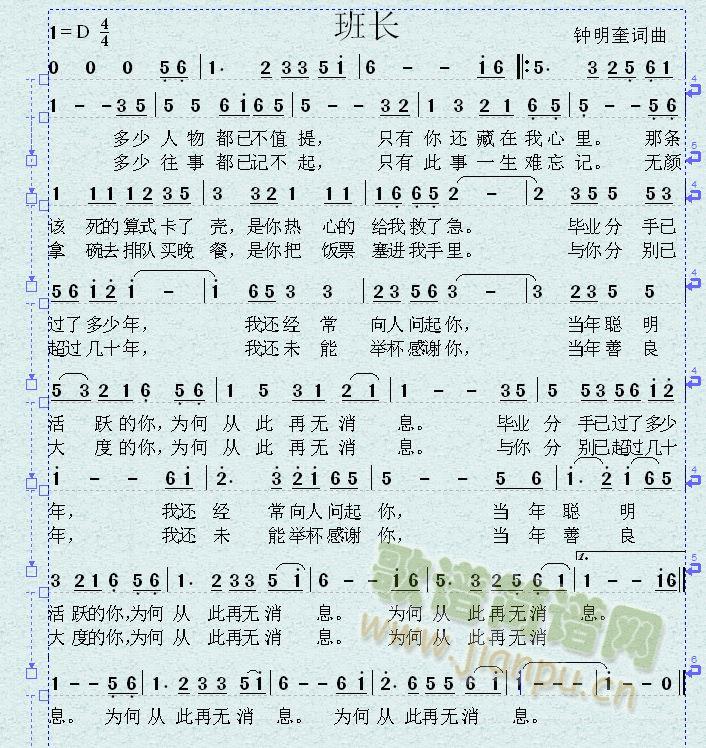 班长
1=D 4/4
钟明奎词曲
0 0 0 5 6 | 1· 2 3 3 5 i | 6 - - i 6 ‖: 5· 3 2 5 6 1
1 - - 3 5 | 5 5 6 i 6 5 | 5 - - 3 2 | 1 3 2 1 6 5 | 5 - - 5 6
多少 人 物 都已不值 提， 只有 你 还 藏 在 我 心 里。 那条
多少 往 事 都已记不 起， 只有 此 事 一 生 难忘 记。 无颜
1 1 1 1 2 3 5 | 3 3 2 1 1 1 | 1 6 6 5 2 - | 2 3 5 5 5 3
该 死的 算式 卡了 壳，是你 热 心的 给我 救了 急。 毕业 分 手已
拿 碗去 排队 买晚 餐，是你 把 饭票 塞进 我手 里。 与你 分 别已
5 6 i 2 i - | i 6 5 3 3 | 2 3 5 6 3 - | 3 2 3 5 5
过了 多少 年， 我还 经 常 向人 问起 你， 当年 聪 明
超过 几十 年， 我还 未 能 举杯 感谢 你， 当年 善 良
5 3 2 1 6 5 6 | 1 5 3 1 2 1 | 1 - - 3 5 | 5 5 3 5 6 i 2
活 跃 的 你，为何 从 此 再无 消 息。 毕业 分 手已 过了 多少
大 度 的 你，为何 从 此 再无 消 息。 与你 分 别已 超过 几十
i - - 6 i | 2· 3 2 i 6 5 | 5 - - 5 6 | i· 2 i 6 5
年， 我还 经 常 向人 问起 你， 当 年 聪 明
年， 我还 未 能 举杯 感谢 你， 当 年 善 良
3 2 1 6 5 6 | 1· 2 3 3 5 i | 6 - - i 6 | 5· 3 2 5 6 1 | 1. 1 - - i 6 :‖
活 跃的 你，为何 从 此再 无 消 息。 为何 从 此再 无 消 息。
大 度的 你，为何 从 此再 无 消 息。 为何 从 此再 无 消
1 - - 5 6 | 1· 2 3 3 5 i | 6 - - 6 i | 2· 6 5 5 6 i | i - - - | i - - 0 ‖
息。 为何 从 此再 无 消 息。 为何 从 此再 无 消 息。
歌谱简谱网
www.jianpu.cn